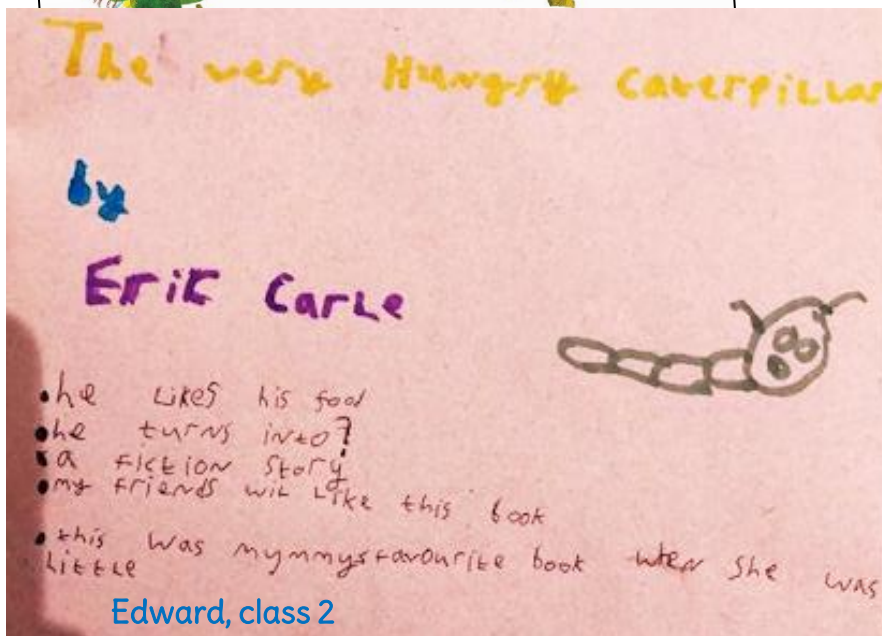 The very Hungry Caterpillar
by
Erik Carle
•he likes his food
•he turns into?
•a fiction story
•my friends wil like this book
•this was mymmys favourite book when she was
little
Edward, class 2